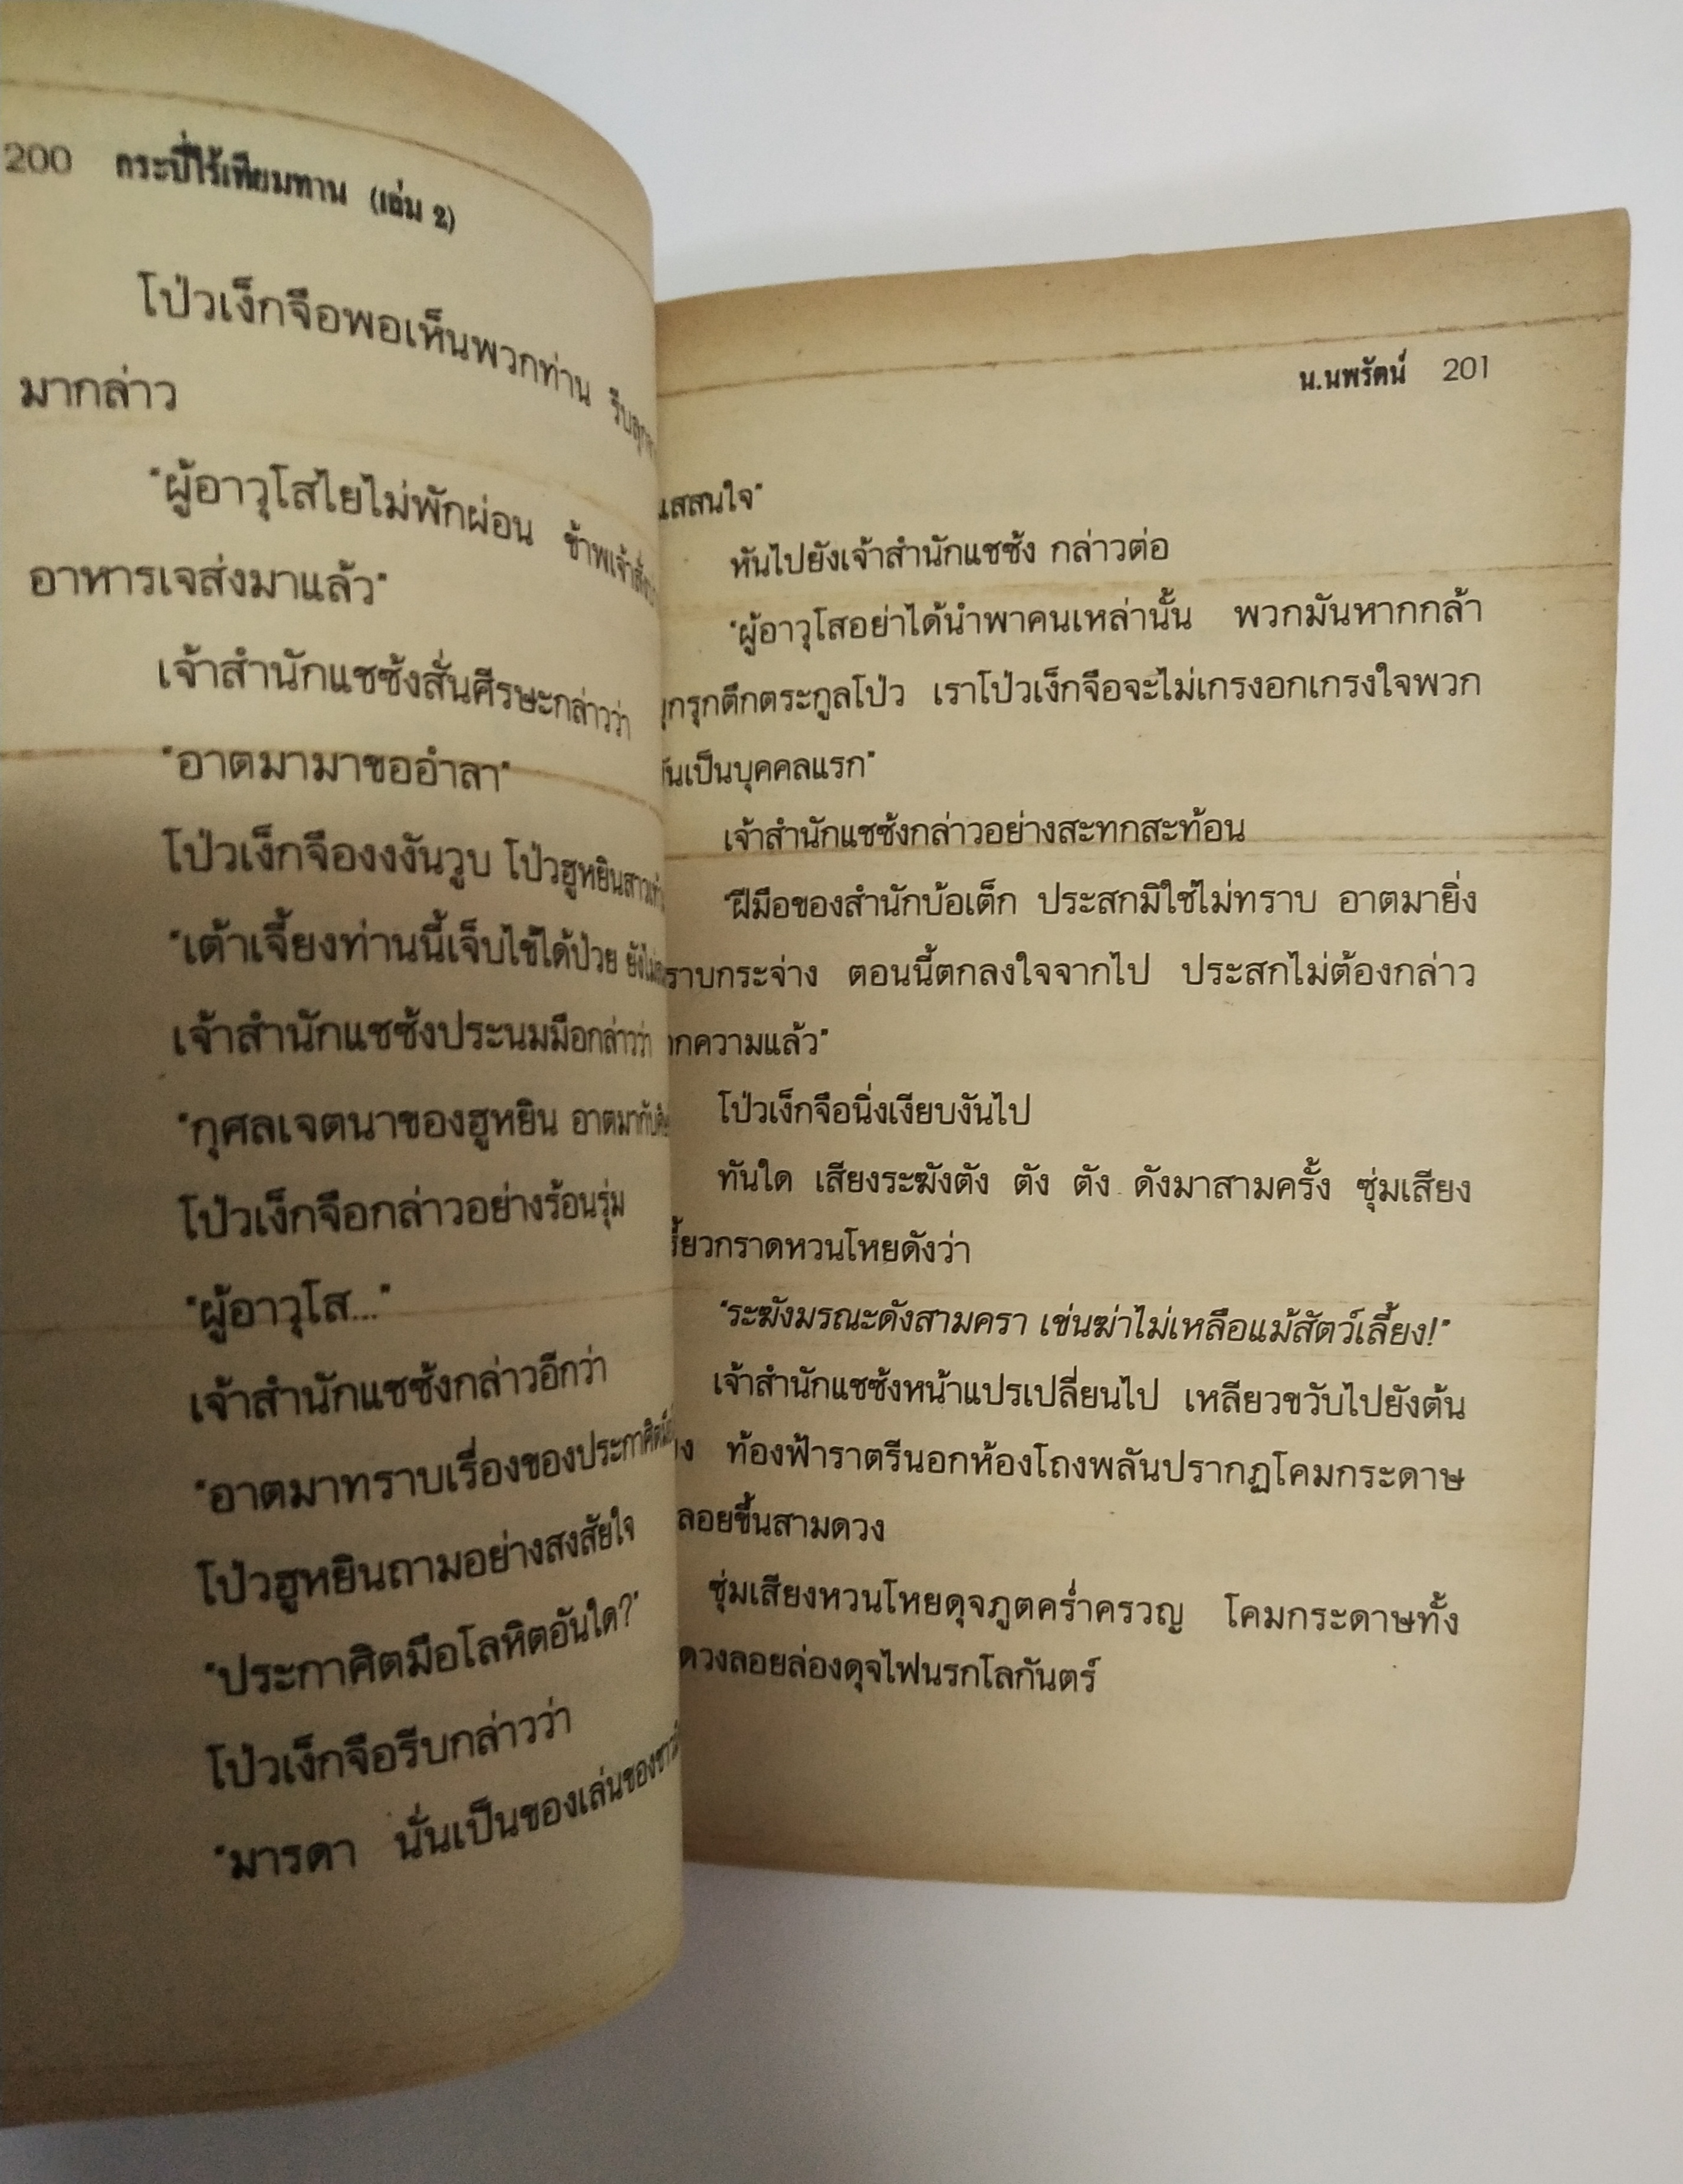 200 กระบี่ไร้เทียมทาน (เล่ม 2)
โป่วเง็กจือพอเห็นพวกท่าน
มากล่าว
"ผู้อาวุโสไยไม่พักผ่อน ข้าพเจ้า
อาหารเจส่งมาแล้ว"
เจ้าสำนักแชซ้งสั่นศีรษะกล่าวว่า
"อาตมามาขออำลา"
โป่วเง็กจืองงงันวูบ โป่วฮูหยิน
"เต้าเจี้ยงท่านนี้เจ็บไข้ได้ป่วย
เจ้าสำนักแชซ้งประนมมือกล่าวว่า
"กุศลเจตนาของฮูหยิน
โป่วเง็กจือกล่าวอย่างร้อนรุ่ม
"ผู้อาวุโส..."
เจ้าสำนักแชซ้งกล่าวอีกว่า
"อาตมาทราบเรื่องของประกาศิต
โป่วฮูหยินถามอย่างสงสัยใจ
"ประกาศิตมือโลหิตอันใด?"
โป่วเง็กจือรีบกล่าวว่า
"มารดา นั่นเป็นของเล่นของ
น.นพรัตน์ 201
แสสนใจ"
หันไปยังเจ้าสำนักแชซ้ง กล่าวต่อ
"ผู้อาวุโสอย่าได้นำพาคนเหล่านั้น พวกมันหากกล้า
ตึกตระกูลโป่ว เราโป่วเง็กจือจะไม่เกรงอกเกรงใจพวก
เป็นบุคคลแรก"
เจ้าสำนักแชซ้งกล่าวอย่างสะทกสะท้อน
"ฝีมือของสำนักบ้อเต็ก ประสกมิใช่ไม่ทราบ อาตมายิ่ง
ราบกระจ่าง ตอนนี้ตกลงใจจากไป ประสกไม่ต้องกล่าว
กความแล้ว"
โป่วเง็กจือนิ่งเงียบงันไป
ทันใด เสียงระฆังตัง ตัง ตัง ดังมาสามครั้ง ซุ่มเสียง
กราดหวนโหยดังว่า
"ระฆังมรณะดังสามครา เข่นฆ่าไม่เหลือแม้สัตว์เลี้ยง!"
เจ้าสำนักแชซ้งหน้าแปรเปลี่ยนไป เหลียวขวับไปยังต้น
ท้องฟ้าราตรีนอกห้องโถงพลันปรากฏโคมกระดาษ
ลอยขึ้นสามดวง
ซุ่มเสียงหวนโหยดุจภูตคร่ำครวญ โคมกระดาษทั้ง
ดวงลอยล่องดุจไฟนรกโลกันตร์